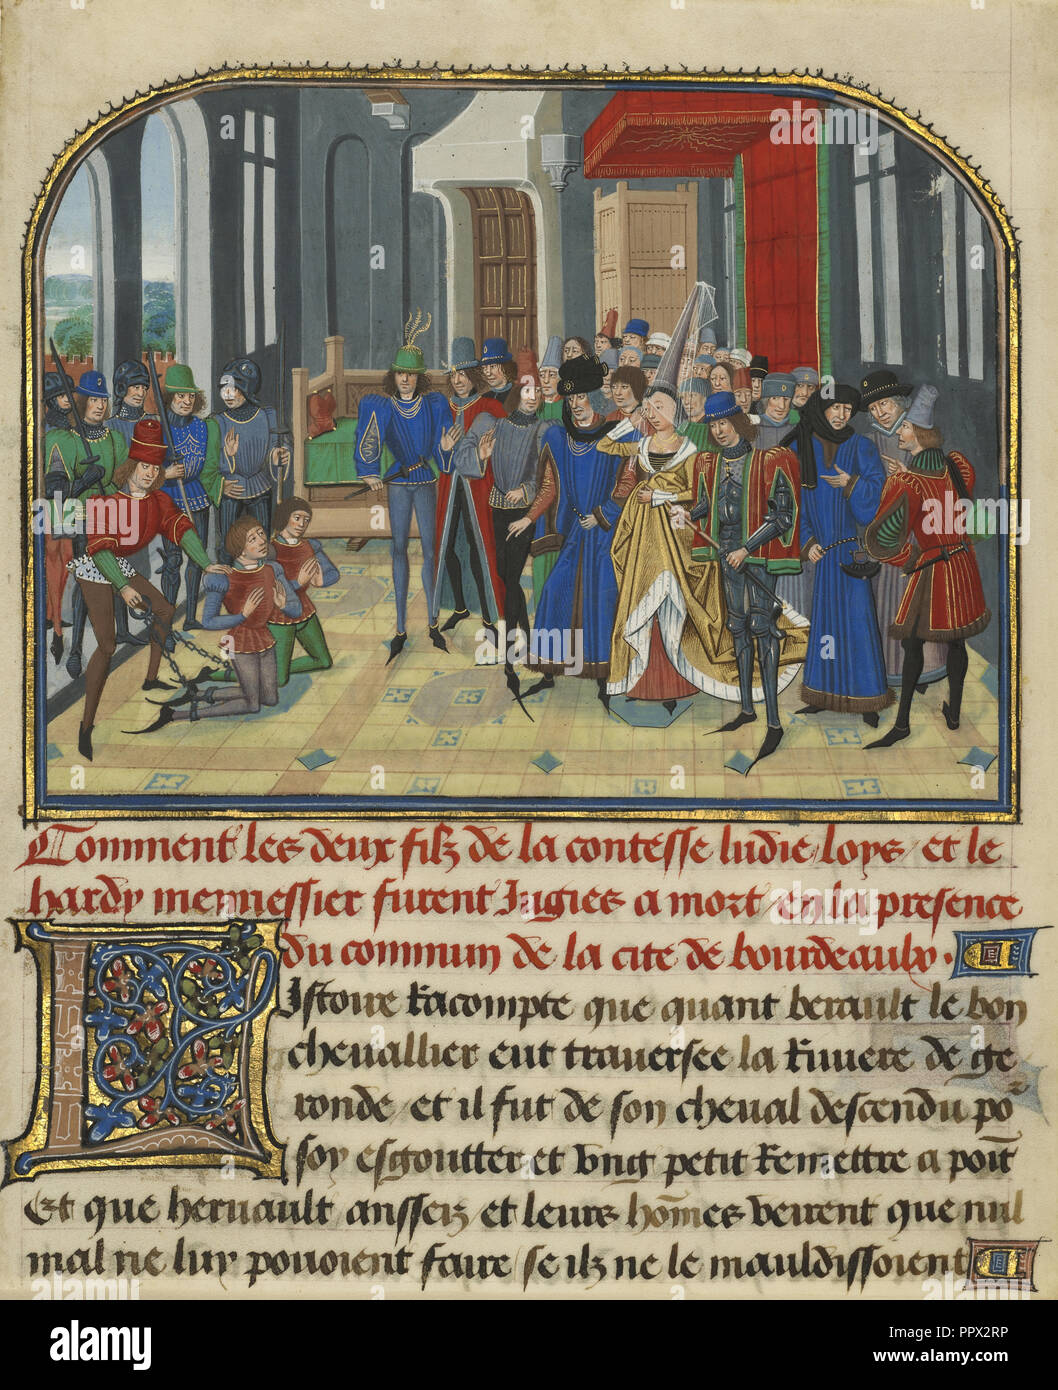 Comment les deux filz de la contesse ludie / loys / et le
hardy mennessier furent Jugies a mort / en la presence
du commun de la cite de bourdeaulx .
LIstoire Racompte que quant berault le bon
chevallier eut traversee la Riviere de ge
ronde / et il fut de son cheval descendu po
soy esgoutter et vng petit Remettre a point
Et que hernault / ansseiz et leurs hommes veirent que nul
mal ne luy pouoient faire / se ilz ne le mauldissoient
alamy
Image ID: PPX2RP
www.alamy.com